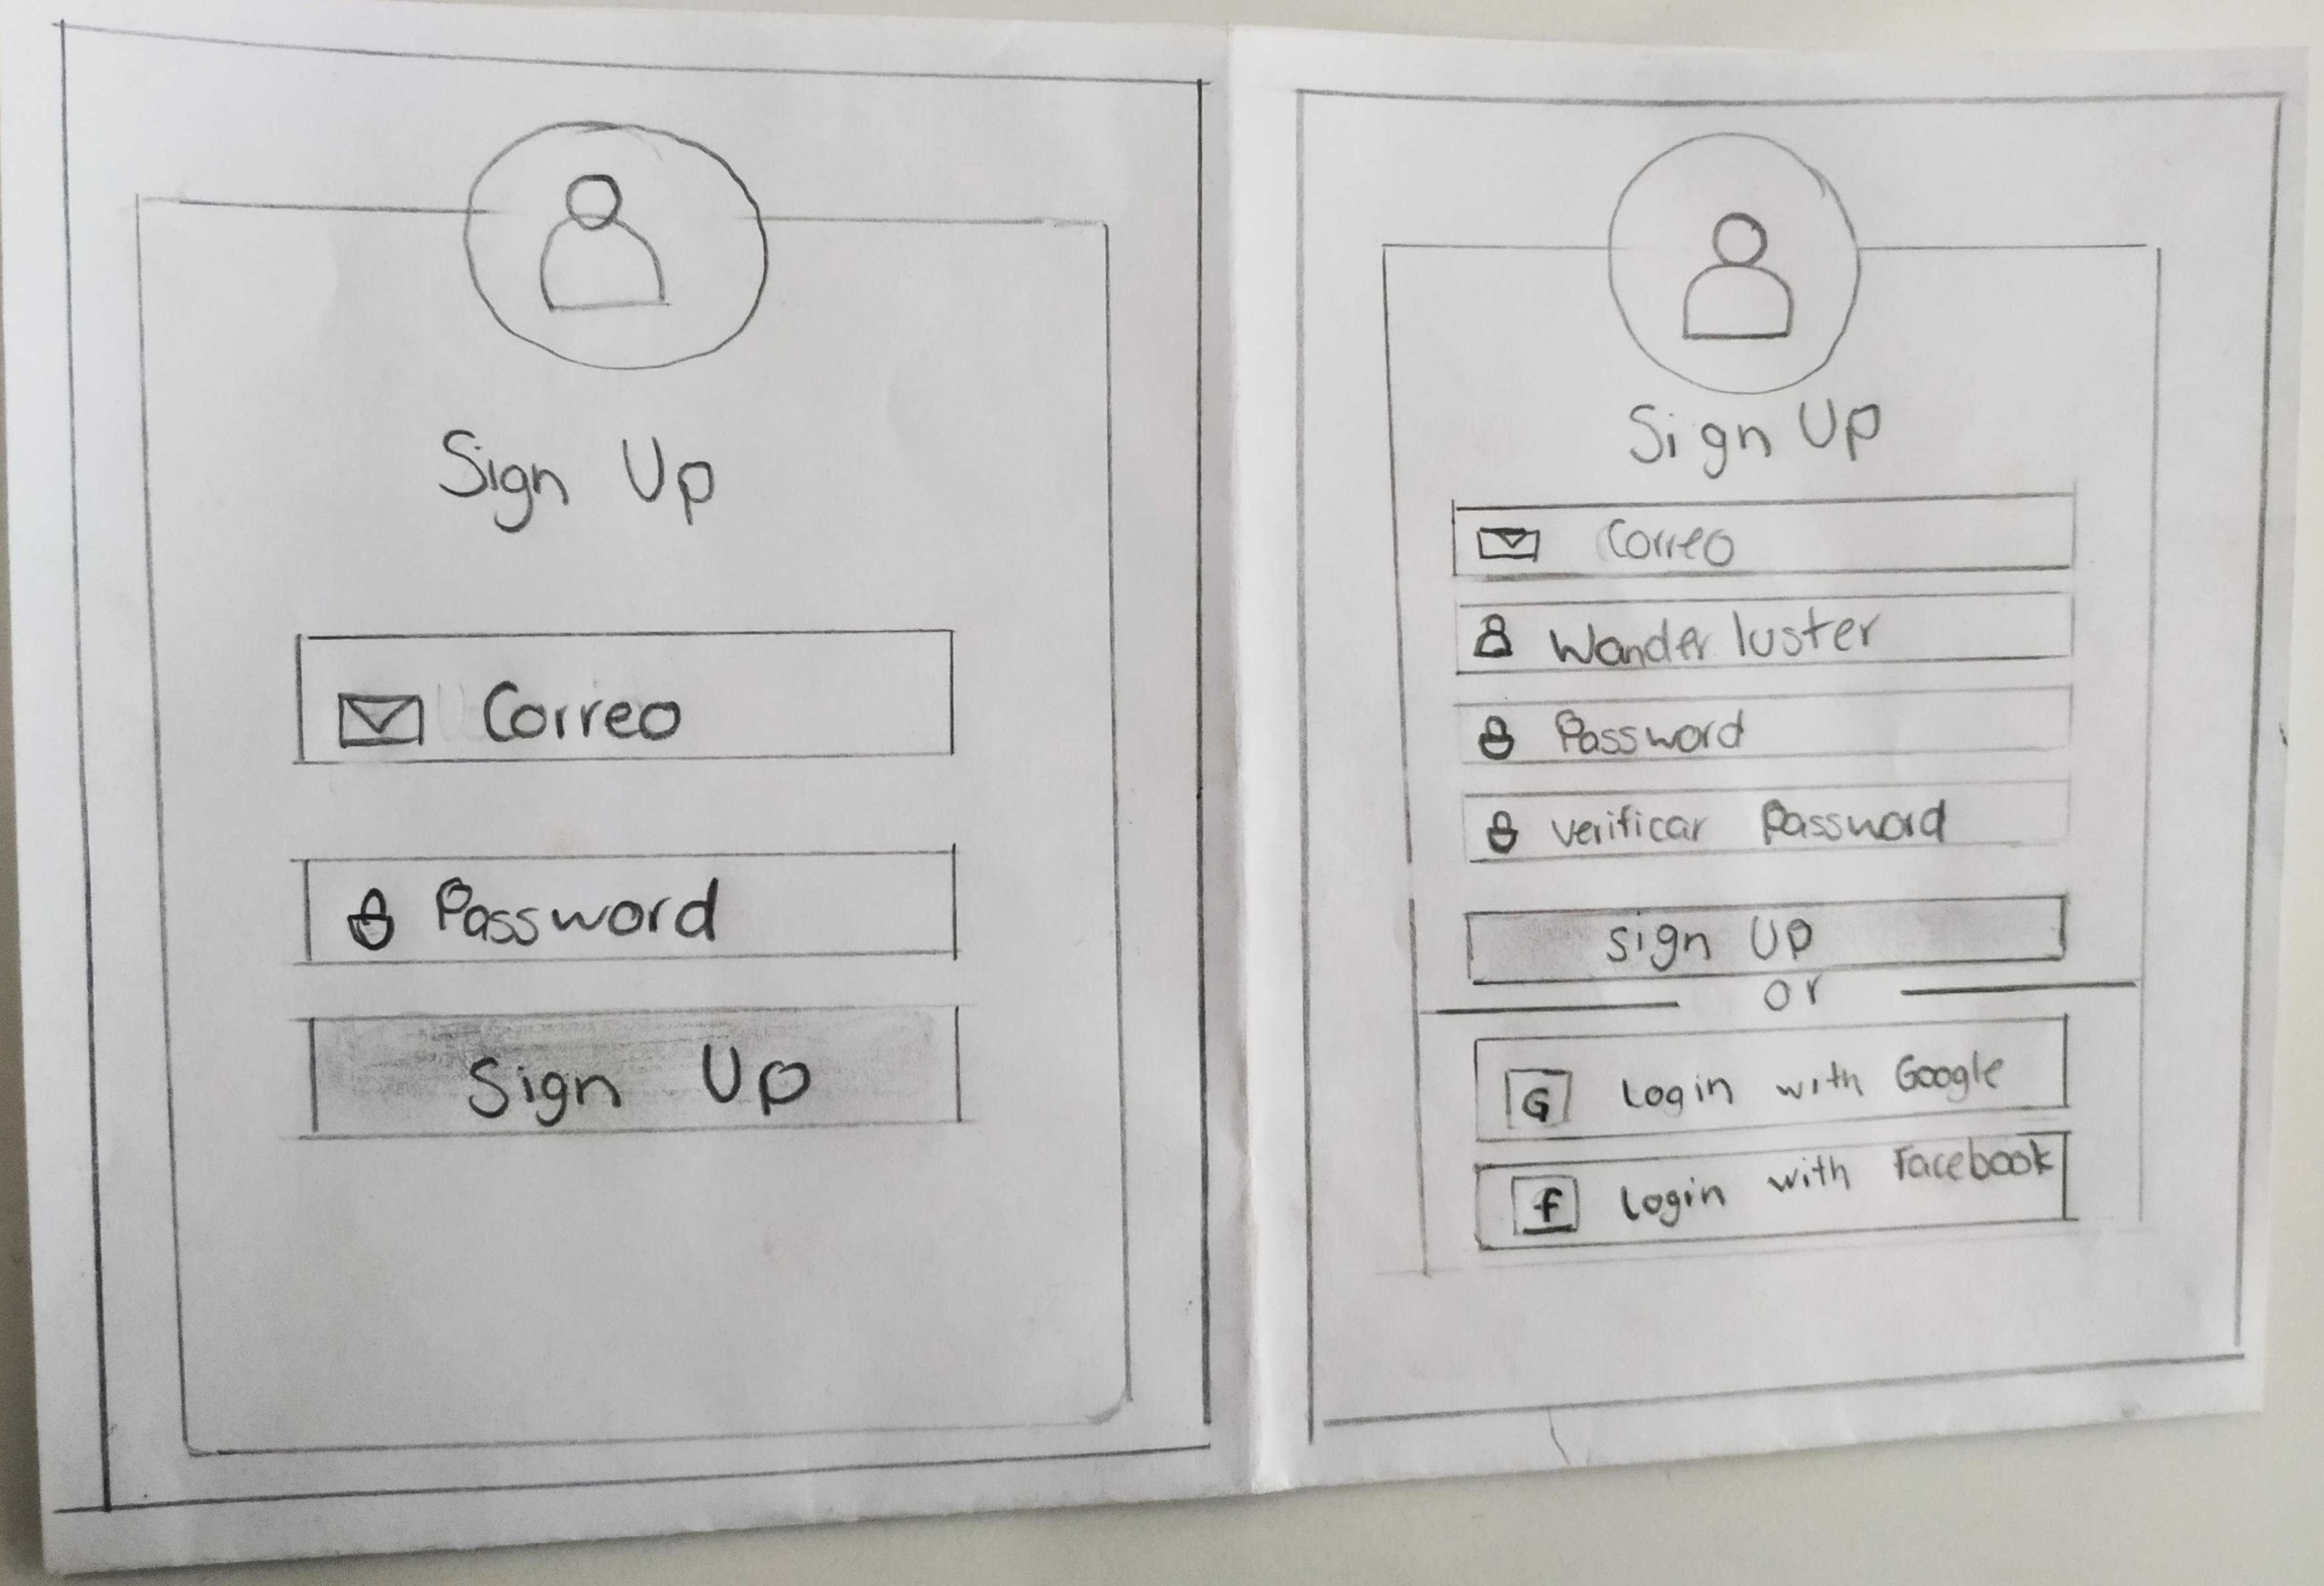 Sign Up
Correo
Password
Sign Up
Sign Up
Correo
Wander luster
Password
verificar Password
sign Up
or
G Login with Google
f Login with Facebook